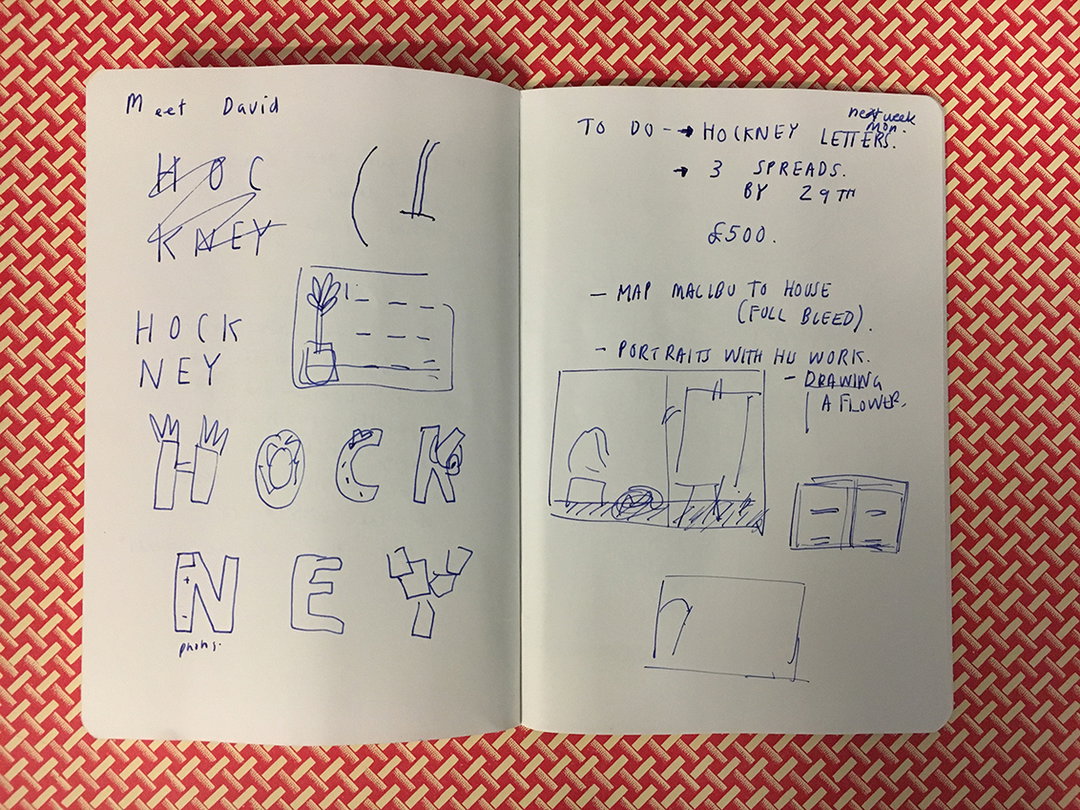 Meet David
HOC
KNEY
HOCK
NEY
HOCK
NEY
next week
mon.
TO DO → HOCKNEY LETTERS.
→ 3 SPREADS.
BY 29TH
£500.
— MAP MALIBU TO HOUSE
(FULL BLEED).
— PORTRAITS WITH HIS WORK.
— DRAWING
A FLOWER.